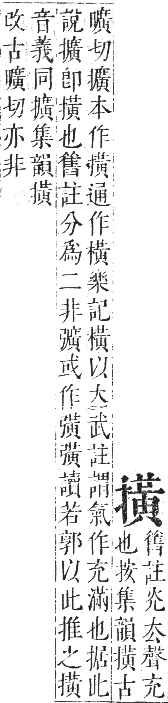 撗
舊註炗厺聲充
也按集韻撗古
曠切擴本作撗通作橫樂記橫以立武註謂氣作充滿也据此
說擴卽撗也舊註分爲二非彍或作彉彉讀若郭以此推之撗
音義同擴集韻撗
改古曠切亦非